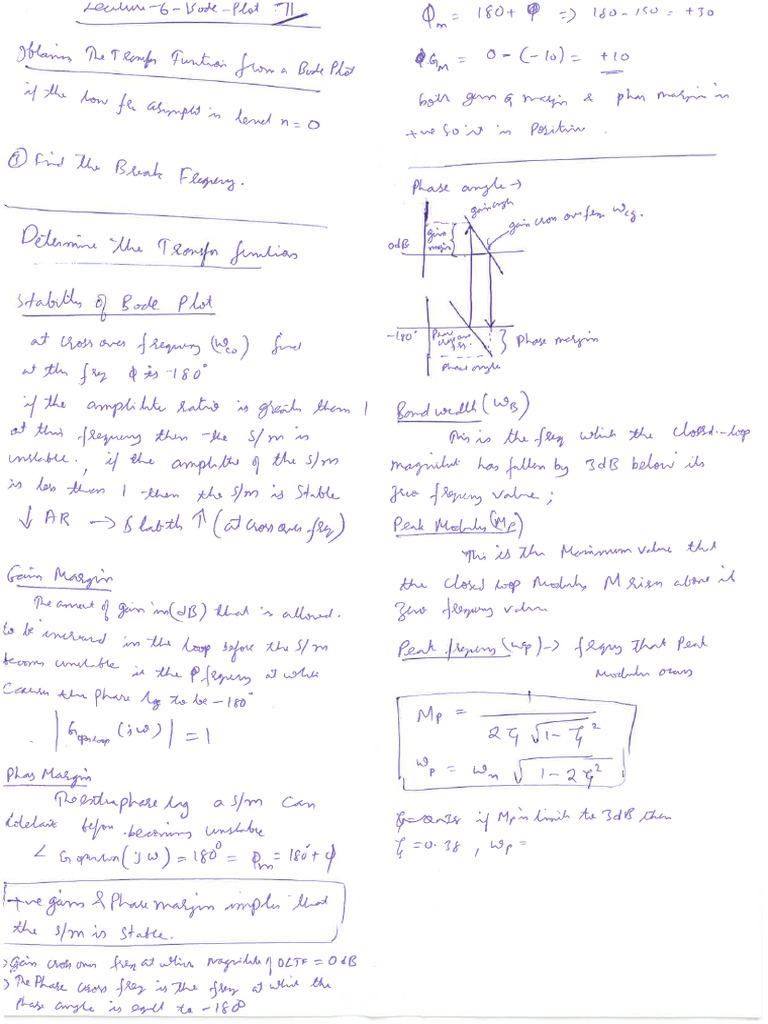 Lecture-6-Bode-Plot II
Obtaining The Transfer Function from a Bode Plot
if the low fre asymptot is level n=0
① Find the Break Freqency.
Determine the Transfer functions
Stability of Bode Plot
at cross over frequency (ωco) find
at this freq Φ is -180°
if the amplitute ratio is greater than 1
at this frequency then the s/m is
unstable., if the amplitte of the s/m
is less than 1 then the s/m is Stable
↓ AR → Stabth ↑ (at cross over freq)
Gain Margin
The amout of gain in(dB) that is allowed.
to be incresed in the loop before the s/m
becoms unstable is the frequeny at which
causes the phase lag to be -180°
|Gopenloop (jω)| = 1
Phas Margin
The extra phase lag a s/m can
before becoming unstable
∠ Gopenloop(jω) = 180° = Φm = 180°+ φ
+ve gain & Phase margin implies that
the s/m is Stable.
> Gain cross over freq at which magnitude of OLTF = 0dB
> The Phase cross freq is the freq at whit the
phase angle is equll to -180°
Φm = 180+ φ => 180-150 = +30
Gm = 0-(-10) = +10
both gain margin & phas margin is
+ve so it is Positive.
Phase angle →
gain cross over freq ωcg.
gain margin
0dB
-180°
Phase cross over fre.
} Phase margin
Phase angle
Band width (ωB)
This is the freq which the Closed-loop
magnitut has fallen by 3dB below its
zero freqeny value;
Peak Modulus (Mp)
This is the Maximum value that
the Closed loop Modulus M rises above it
Zero freqeny value
Peak freqeny (ωp) → freqny that Peak
Modulus occurs
Mp = 1 / 2ζ √1-ζ²
ωp = ωn √1-2ζ²
if Mp is limit to 3dB then
ζ = 0.38 , ωp =